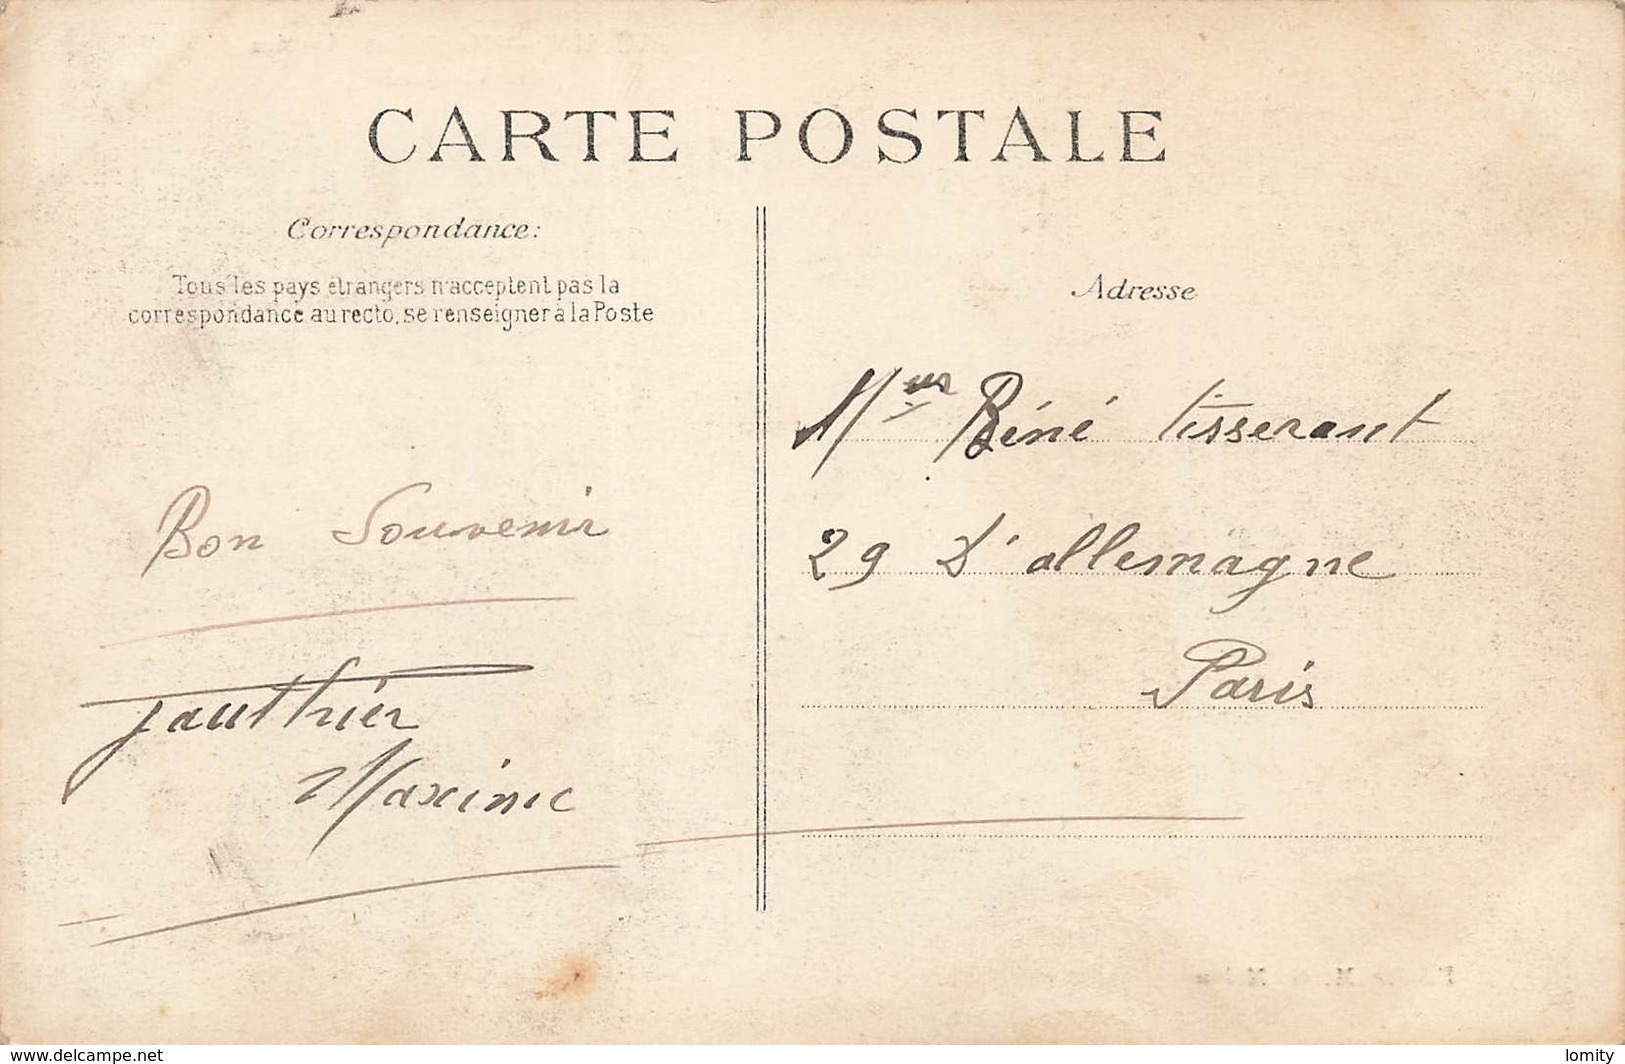 CARTE POSTALE
Correspondance:
Tous les pays étrangers n'acceptent pas la
correspondance au recto, se renseigner à la Poste
Bon Souvenir
Gauthier
Maxime
Adresse
Meur Réné tisserant
29 D'allemagne
Paris
www.delcampe.net
lomity